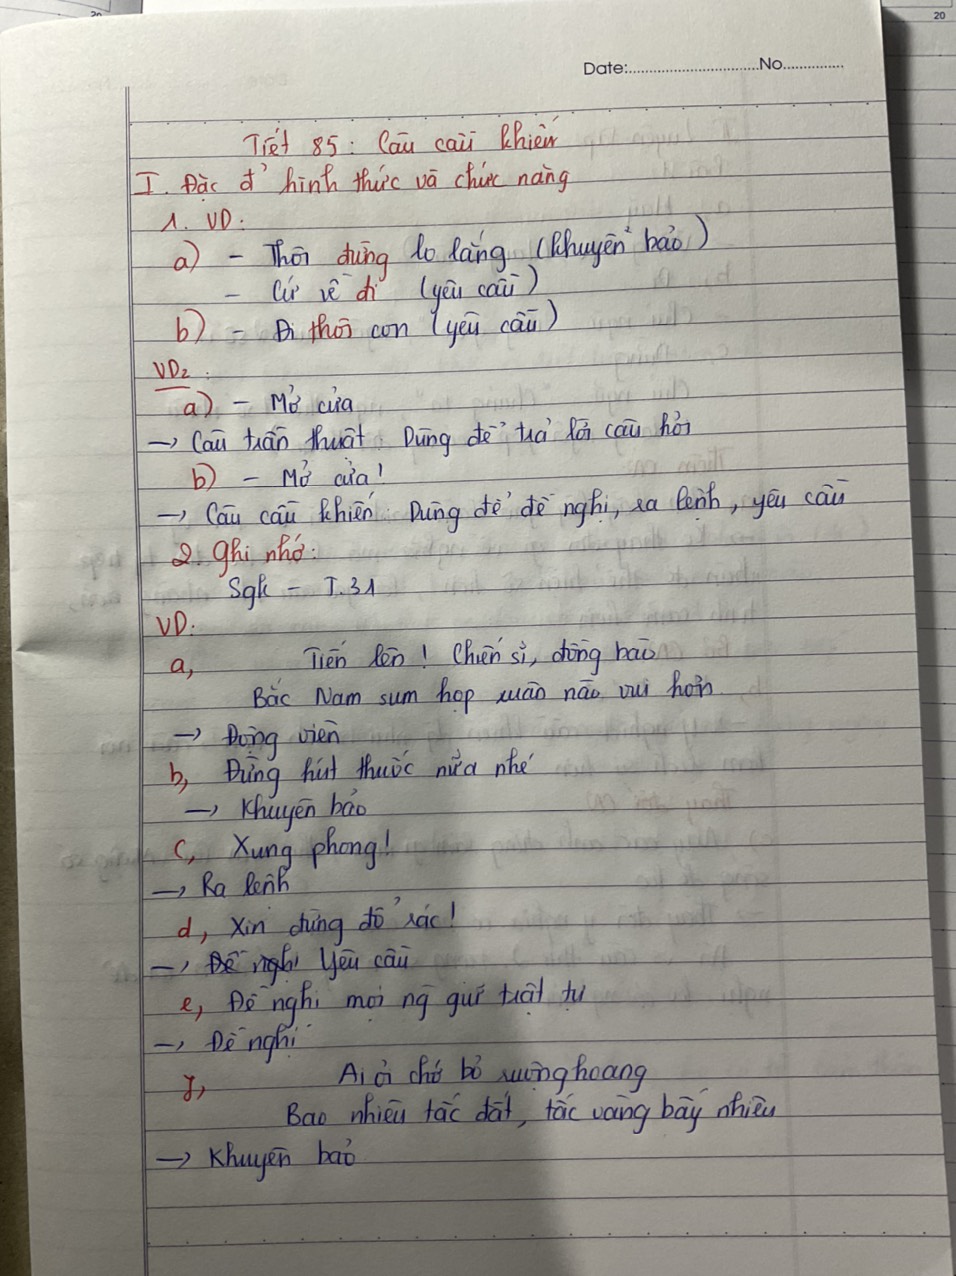 20
20
Date:..............................No..............
Tiết 85: Câu cầu khiến
I. Đặc đ' hình thức và chức năng
1. VD:
a) - Thôi đừng lo lắng (khuyên bảo)
- Cứ về đi (yêu cầu)
b) - Đi thôi con (yêu cầu)
VD2:
a) - Mở cửa
→ Câu trần thuật. Dùng để trả lời câu hỏi
b) - Mở cửa!
→ Câu cầu khiến. Dùng để đề nghị, ra lệnh, yêu cầu
2. Ghi nhớ:
Sgk - T.31
VD:
a, Tiến lên! Chiến sĩ, đồng bào
Bắc Nam sum họp xuân nào vui hơn
→ Động viên
b, Đừng hút thuốc nữa nhé
→ Khuyên bảo
c, Xung phong!
→ Ra lệnh
d, Xin đừng đổ rác!
→ Đề nghị Yêu cầu
e, Đề nghị mọi ng giữ trật tự
→ Đề nghị
Ai ơi chớ bỏ ruộng hoang
Bao nhiêu tấc đất, tấc vàng bấy nhiêu
→ Khuyên bảo